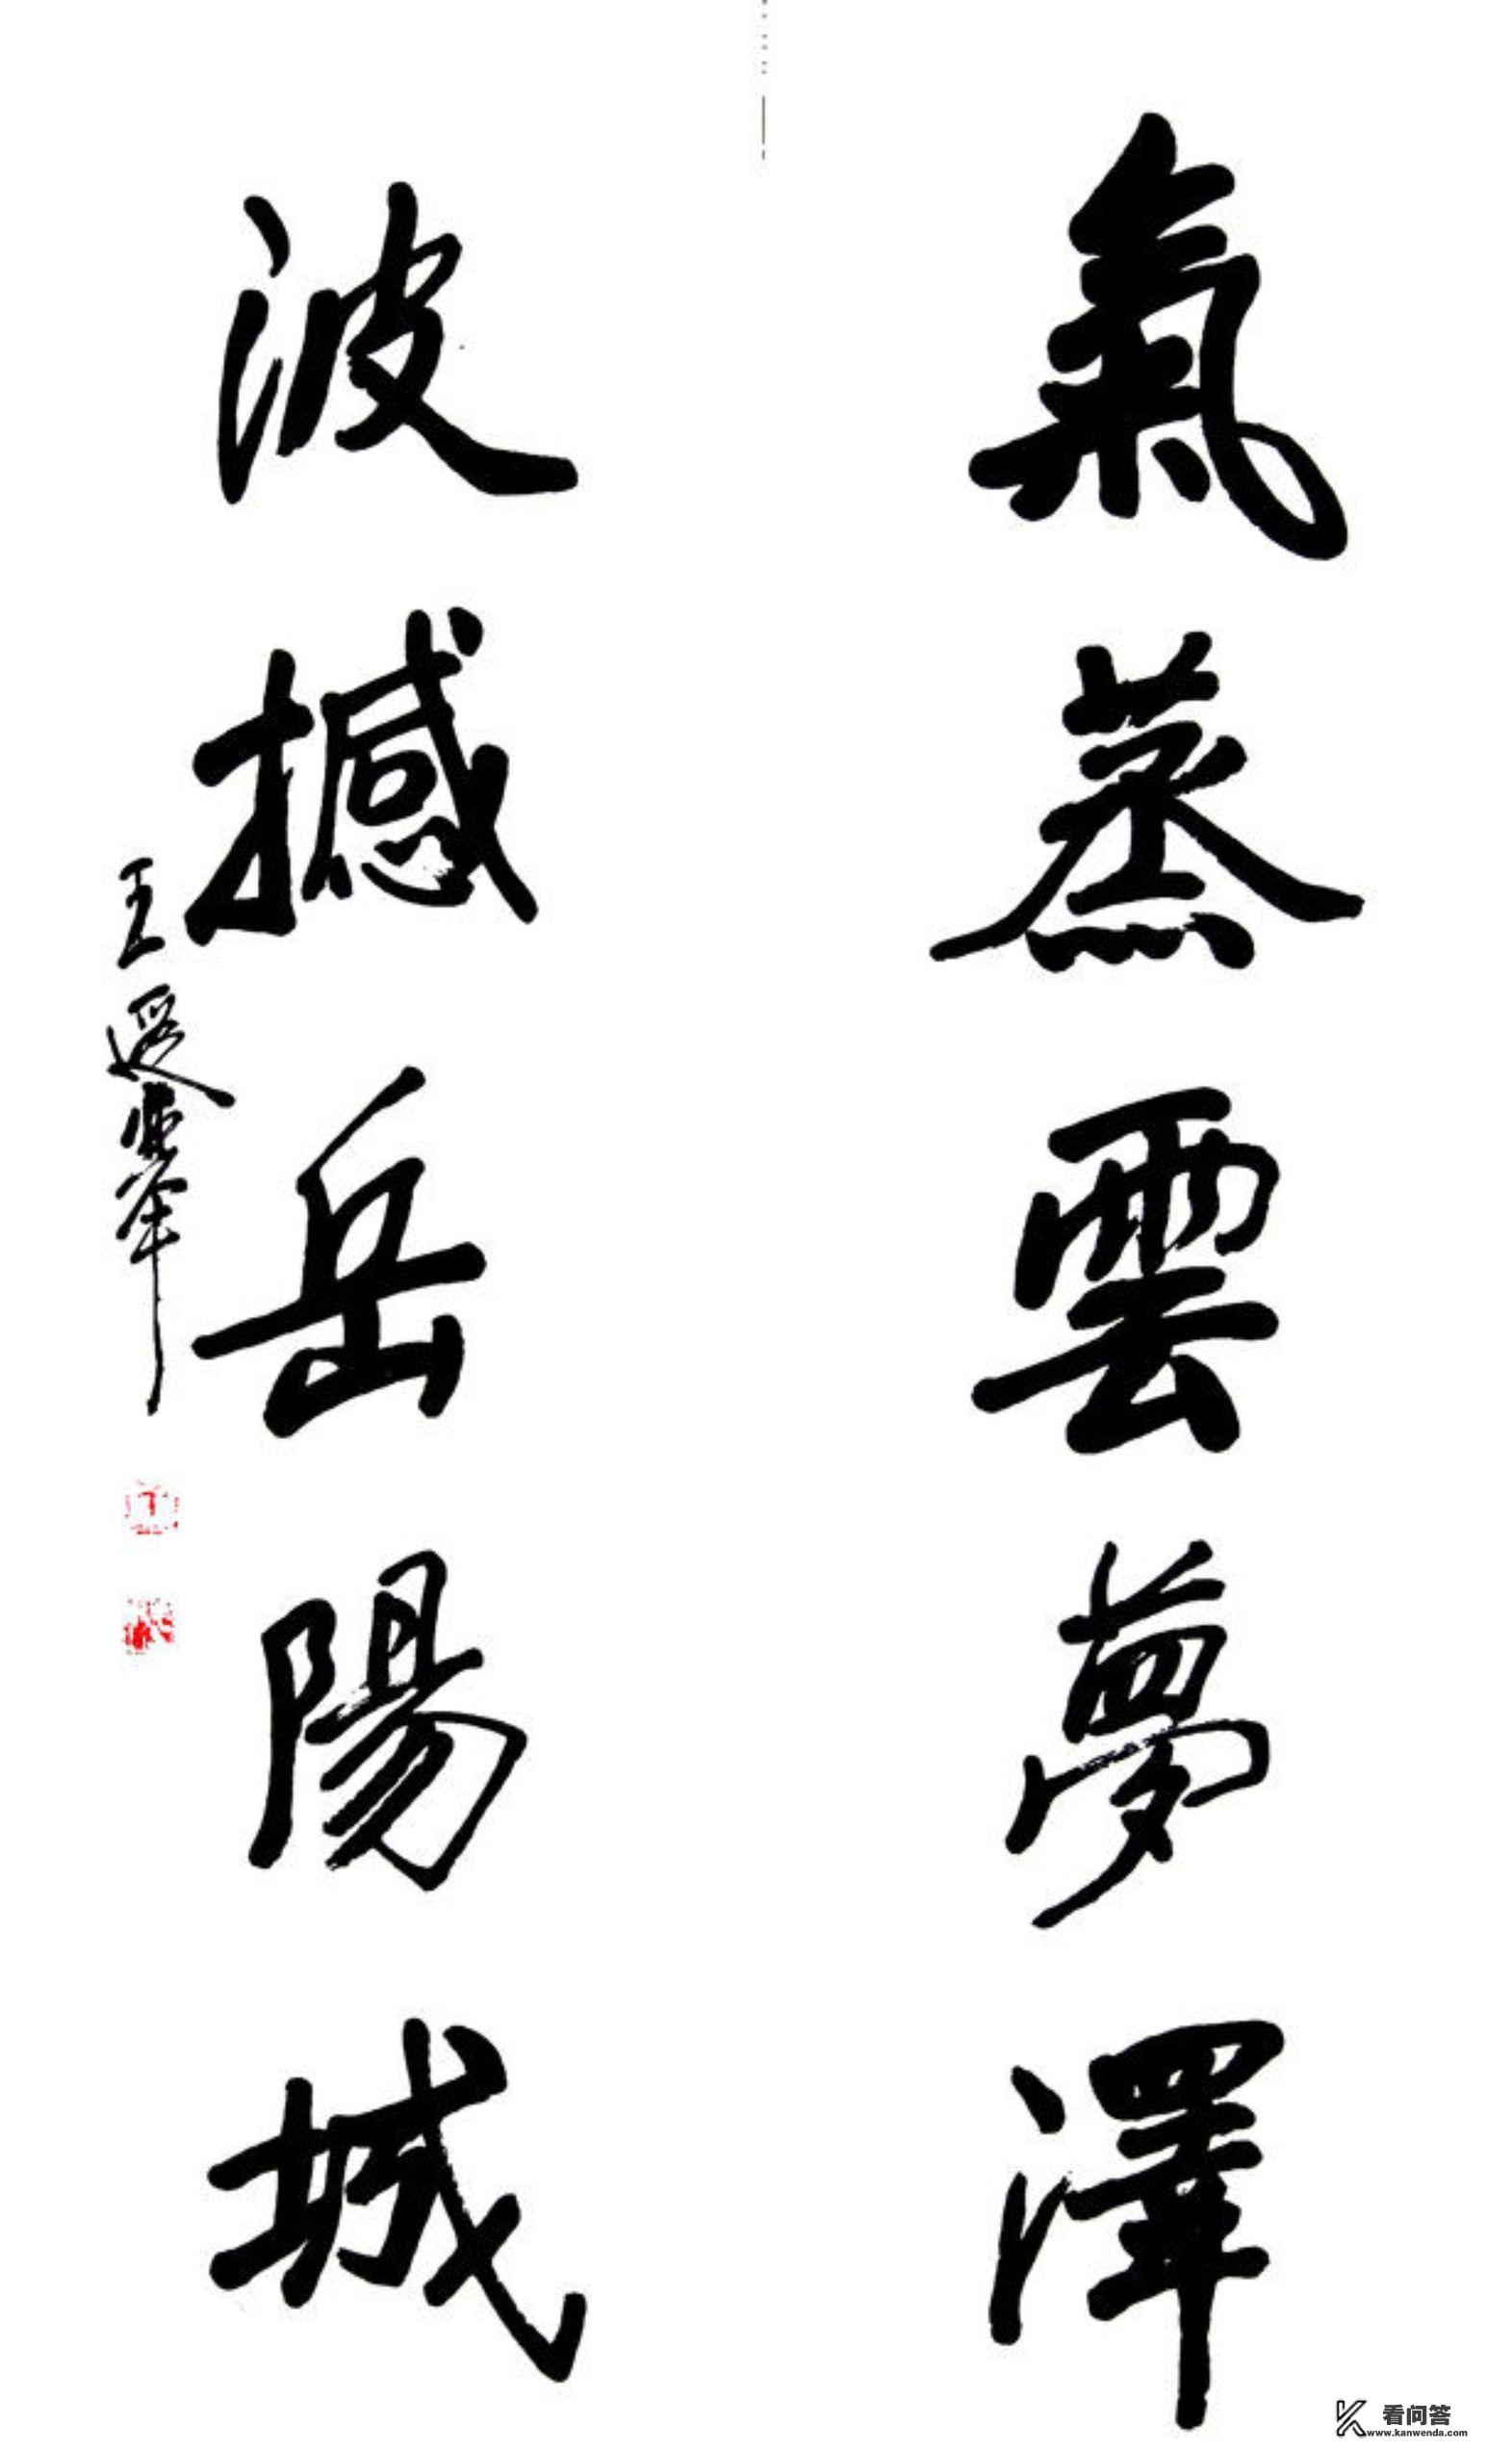 氣蒸雲夢澤
波撼岳陽城
王遐舉
看问答
www.kanwenda.com